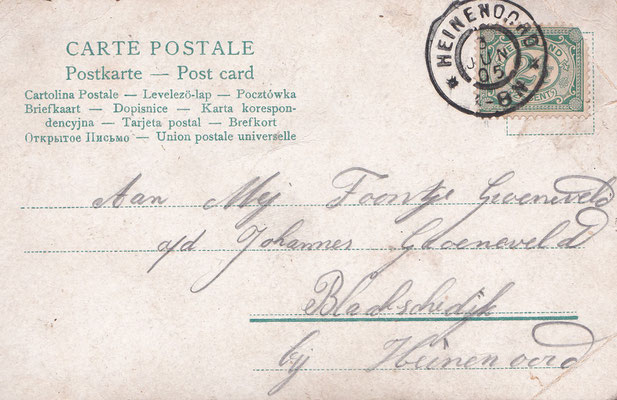 CARTE POSTALE
Postkarte — Post card
Cartolina Postale — Levelező-lap — Pocztówka
Briefkaart — Dopisnice — Karta korespon-
dencyjna — Tarjeta postal — Brefkort
Открытое Письмо — Union postale universelle
HEINENOORD
3
JUN
05
8N
Aan Mej Foontje Groeneveld
a/d Johannes Groeneveld
Blaakschedijk
bij Heinenoord